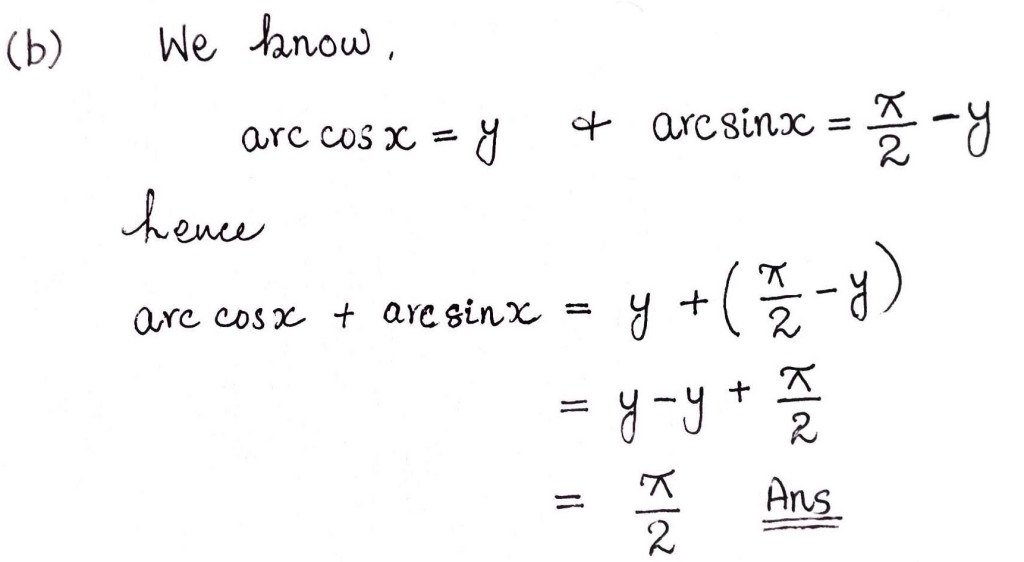 (b) We know,
arc cos x = y & arcsinx = π/2 - y
hence
arc cosx + arc sinx = y + (π/2 - y)
= y - y + π/2
= π/2 Ans